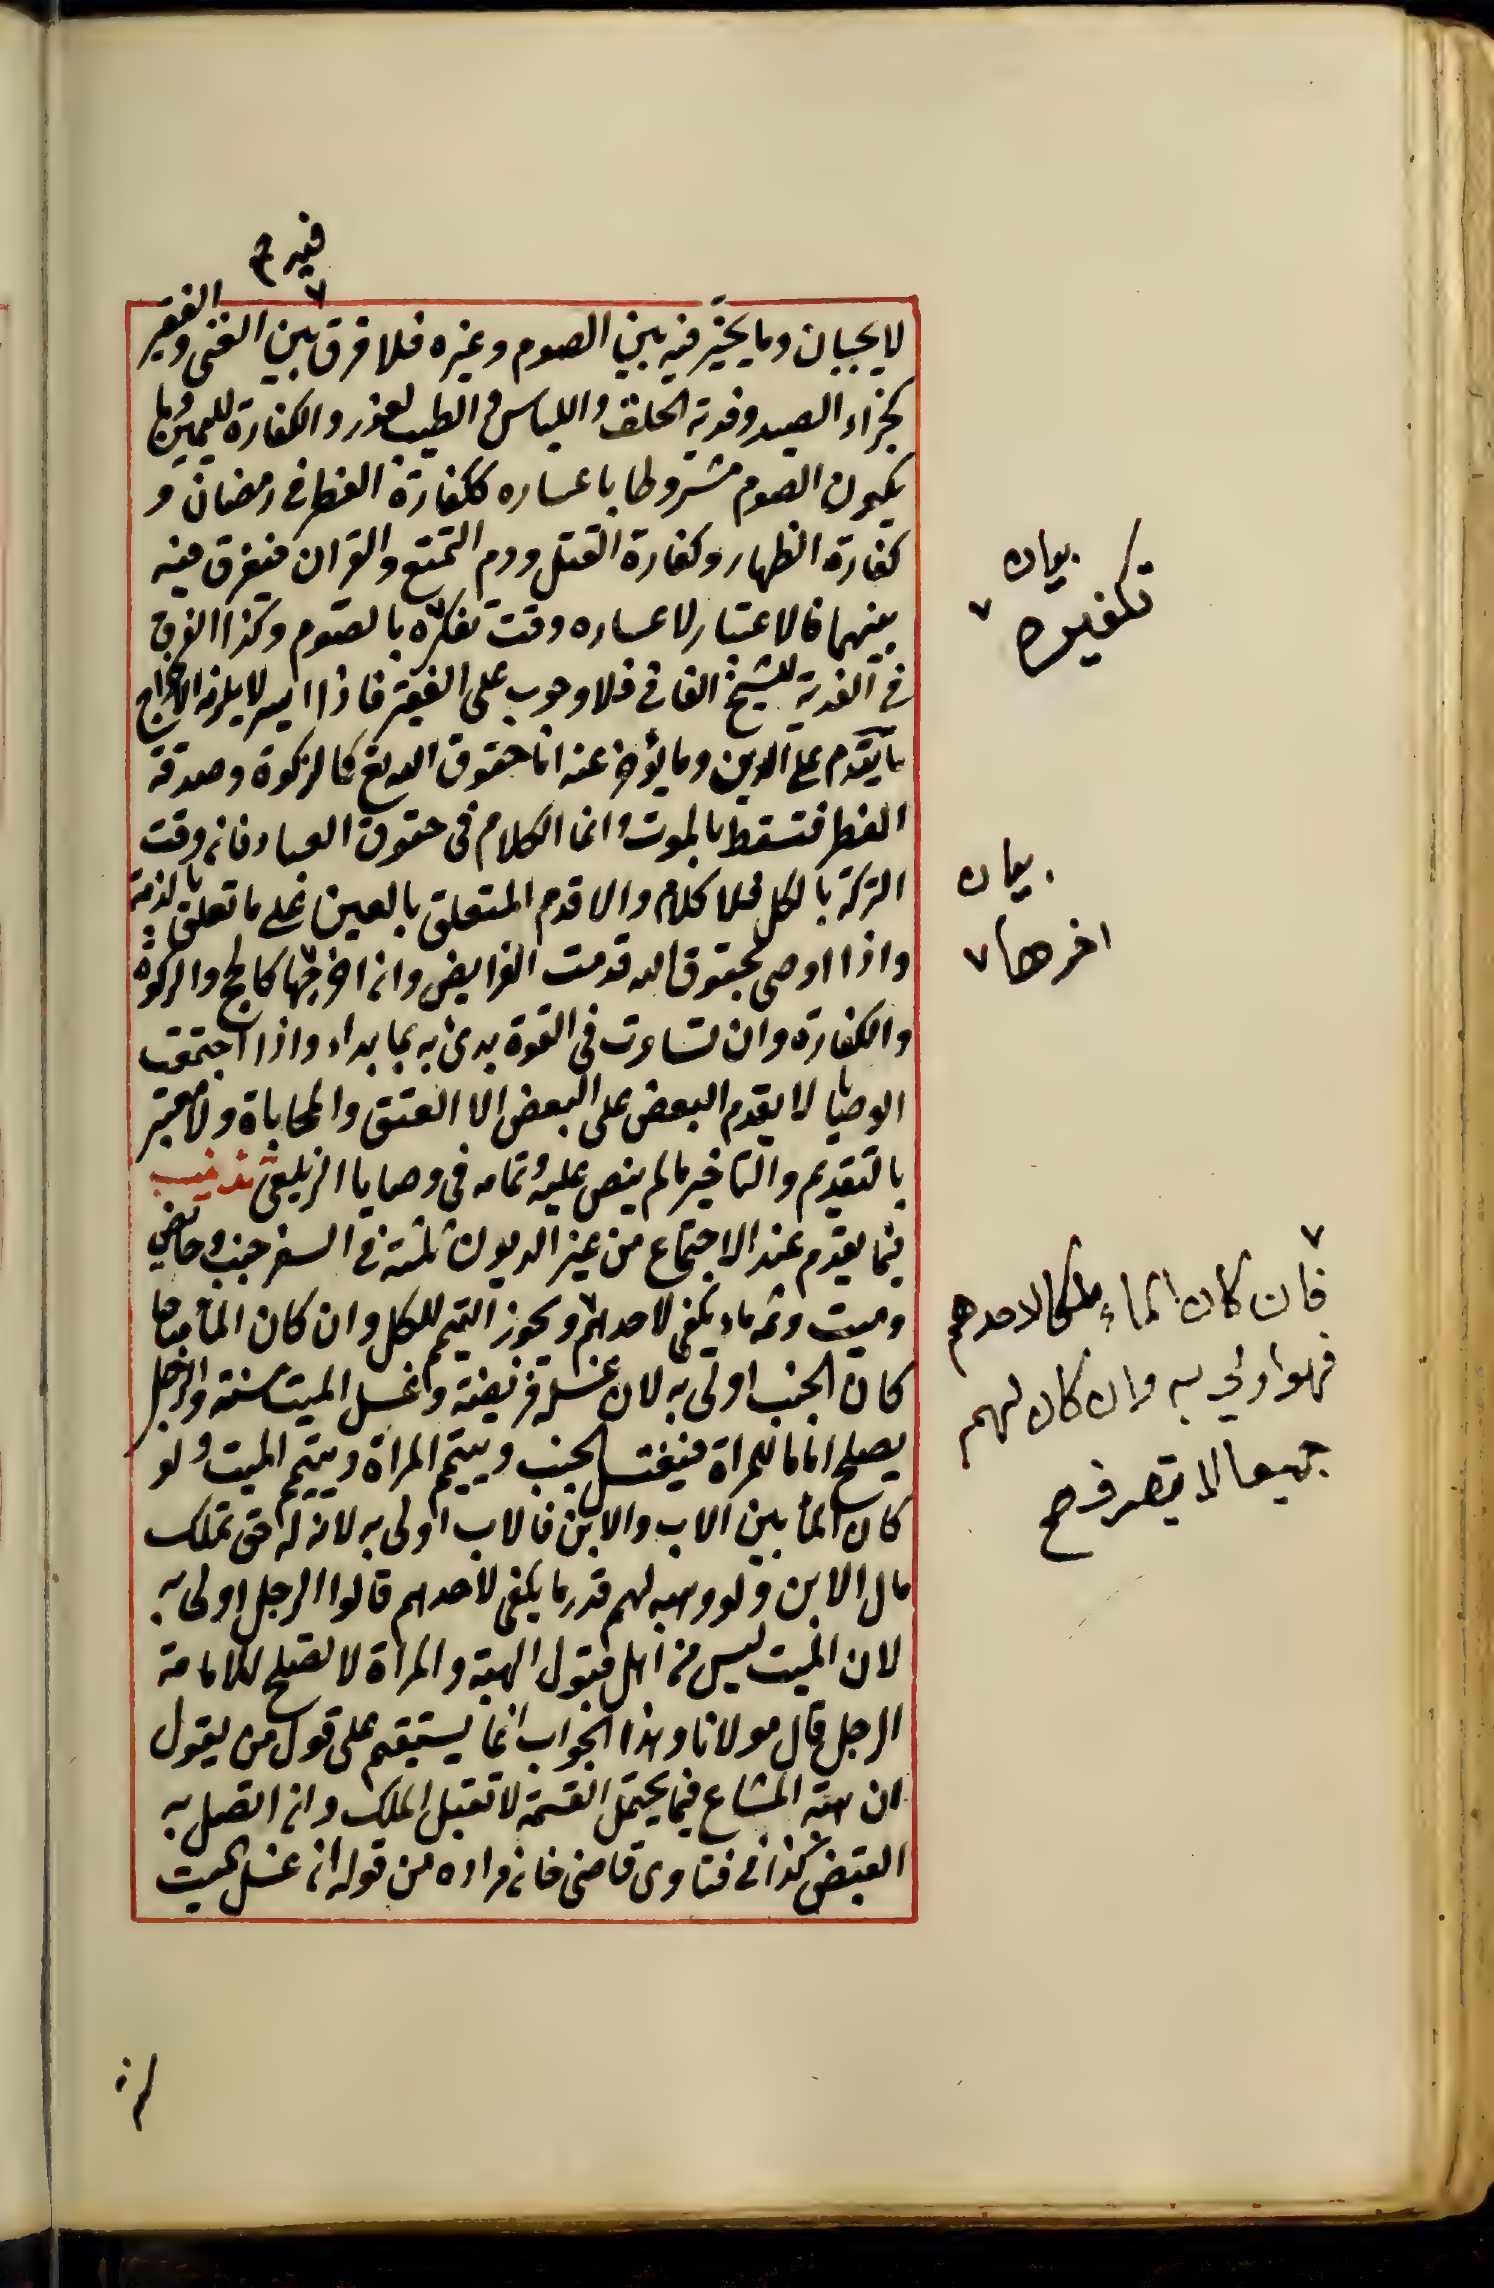 فيه صح
لا يجبان وما يخيّر فيه بين الصوم وغيره فلا فرق بين الغنى والفقير
كجزاء الصيد وفدية الحلق واللباس والطيب لعذر والكفارة لليمين وما
يكون الصوم مشروطا باعساره ككفارة الفطر في رمضان و
كفارة الظهار وكفارة القتل ودم التمتع والقران فيفرق فيه
بينهما فالاعتبار لاعساره وقت تفكره بالصوم وكذا الفرق
في الفدية للشيخ الفاني فلا وجوب على الفقير فاذا ايسر لا يلزمه الاخراج
ما يقدم على الدين وما يؤخر عنه اما حقوق الله تع كالزكوة وصدقة
الفطر فتسقط بالموت وانما الكلام في حقوق العباد فان وفت
التركة بالكل فلا كلام والا قدم المتعلق بالعين على ما تعلق بالذمة
واذا اوصى بحقوق الله قدمت الفرايض وان اخرجها كالحج والزكوة
والكفارة وان تساوت في القوة بدئ به بما بداء واذا اجتمعت
الوصايا لا يقدم البعض على البعض الا العتق والمحاباة ولا معتبر
بالتقديم والتاخير ما لم ينص عليه وتمامه في وصايا الزيلعي تذنيب
فيما يقدم عند الاجتماع من غير الديون ثلثة في السفر جنب وحائض
وميت وثمه ماء يكفى لاحدهم ويجوز التيمم للكل وان كان الماء مباحا
كان الجنب اولى به لان غسله فريضة وغسل الميت سنة والرجل
يصلح اماما للمراة فيغتسل الجنب وييتمم المراة وييتمم الميت ولو
كان الماء بين الاب والابن فالاب اولى به لانه له حق تملك
مال الابن ولو وهب لهم قدر ما يكفى لاحدهم قالوا الرجل اولى به
لان الميت ليس من اهل قبول الهبة والمراة لا تصلح للامامة
الرجل قال مولانا وهذا الجواب انما يستيقم على قول من يقول
ان هبة المشاع فيما يحتمل القسمة لا تقبل الملك وان اتصل به
القبض كذا في فتاوى قاضى خان مراده من قوله ان غسل الميت
بيان
تكفيره
بيان
اخرها
فان كان الماء ملكا لاحدهم
فهو اولي به وان كان لهم
جميعا لا يتصرف صح